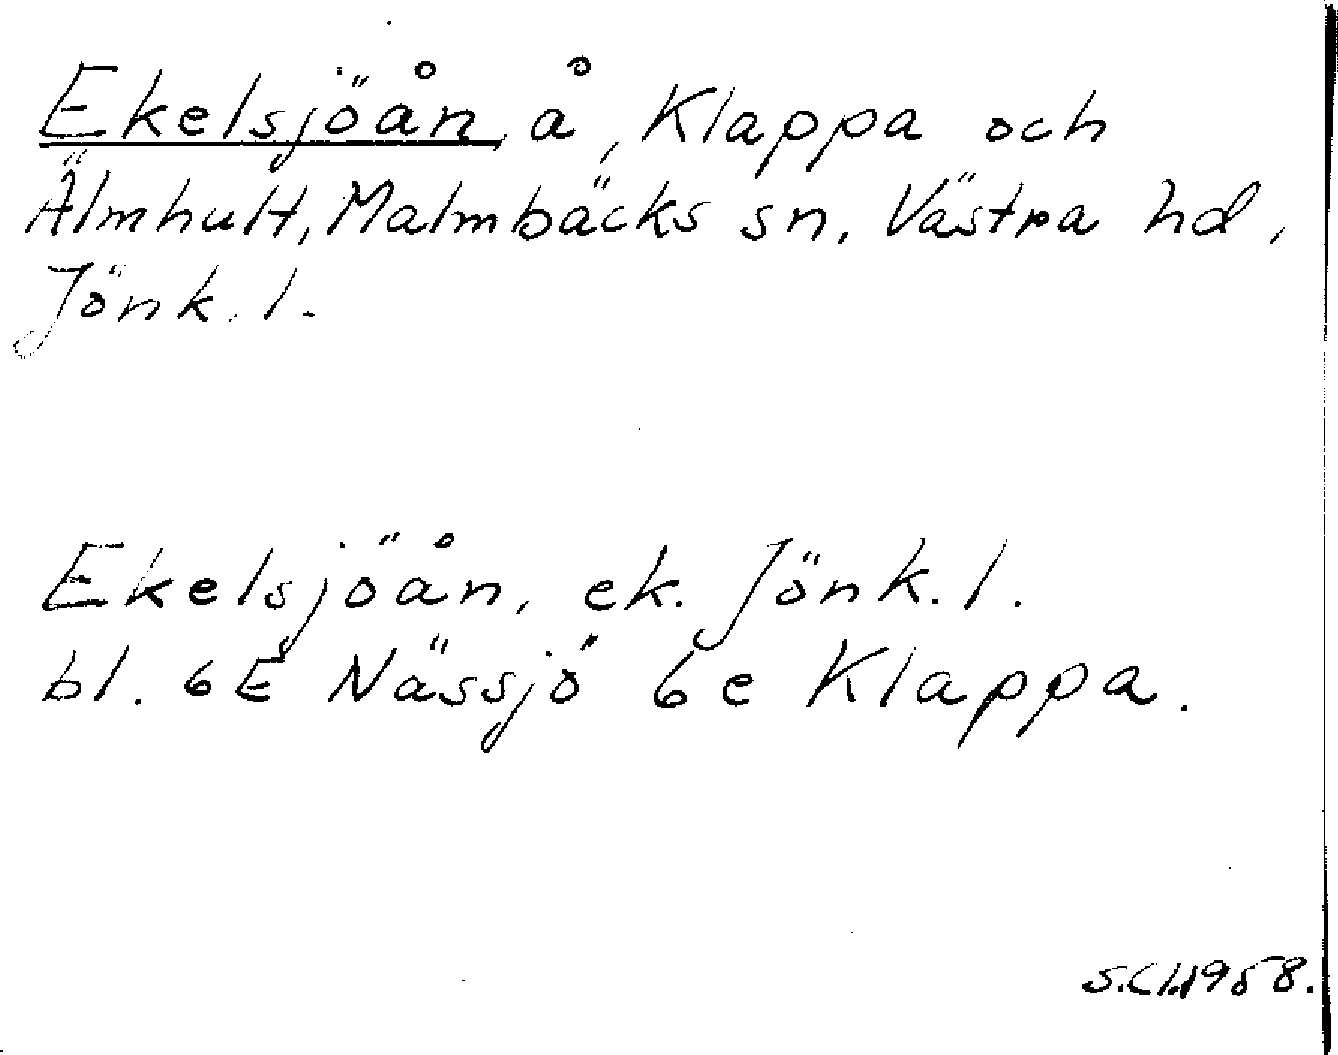 Ekelsjöån, å, Klappa och
Älmhult, Malmbäcks sn, Västra hd,
Jönk. l.
Ekelsjöån, ek. Jönk. l.
bl. 6E Nässjö 6e Klappa.
1958.